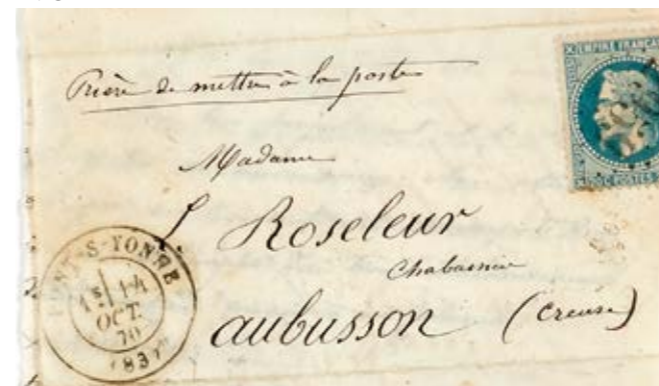 EMPIRE FRANC
Prière de mettre à la poste
Madame
L. Roseleur
Chabassière
aubusson (Creuse)
C POSTES
PONT-S-YONNE
1E 14
OCT.
70
(83)